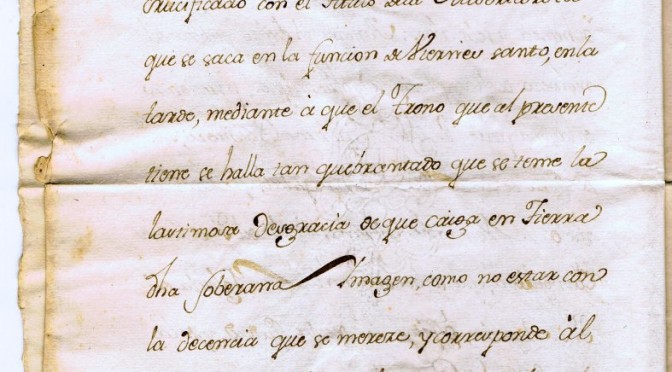 Crucificado con el Titulo de la
que se saca en la funcion de Viernes santo, en la
tarde, mediante à que el Trono que al presente
tiene se halla tan quebrantado que se teme la
lastimosa desgracia de que caiga en Tierra
dha Soberana Imagen, como no estar con
la decencia que se merece, y corresponde àl